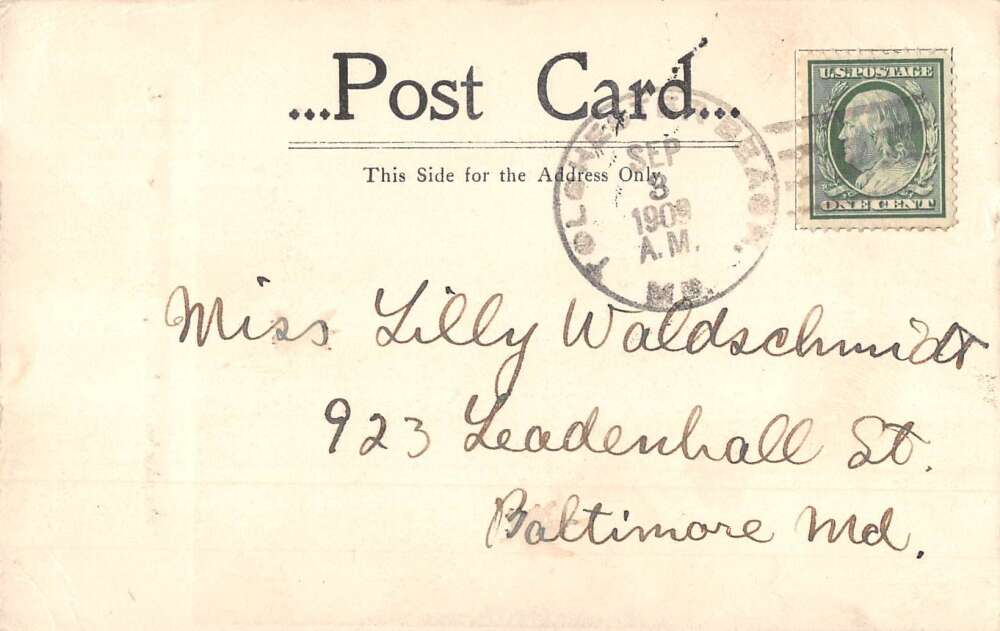 ...Post Card...
This Side for the Address Only
TOLCHESTER BEACH.
SEP
3
1909
A.M.
MD.
U.S. POSTAGE
ONE CENT
Miss Lilly Waldschmidt
923 Leadenhall St.
Baltimore Md.